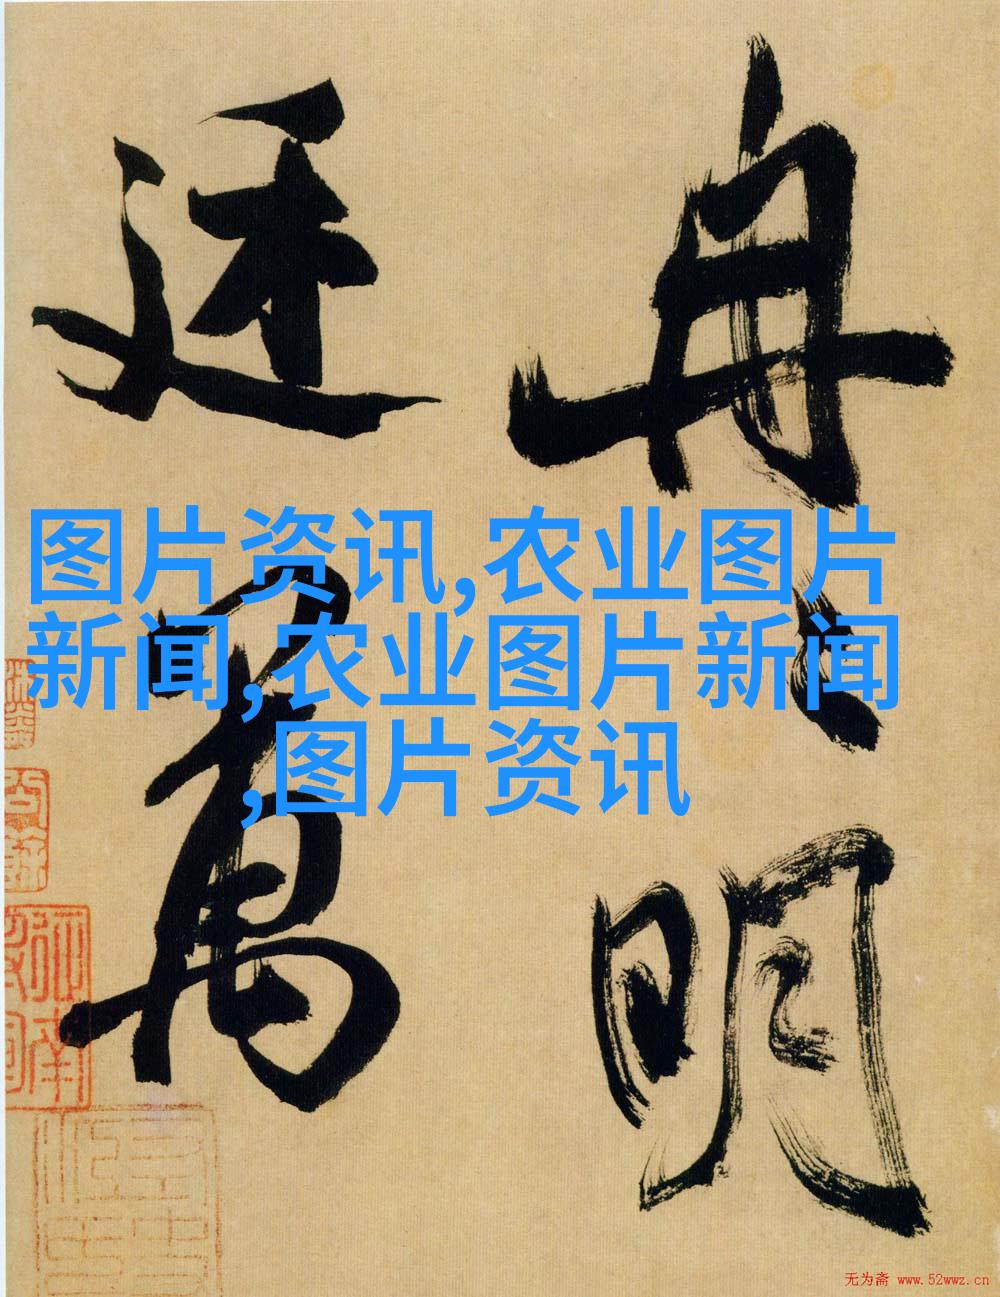 冉々明
廷萬
图片资讯,农业图片
新闻,农业图片新闻
,图片资讯
无为斋 www.52wwz.cn